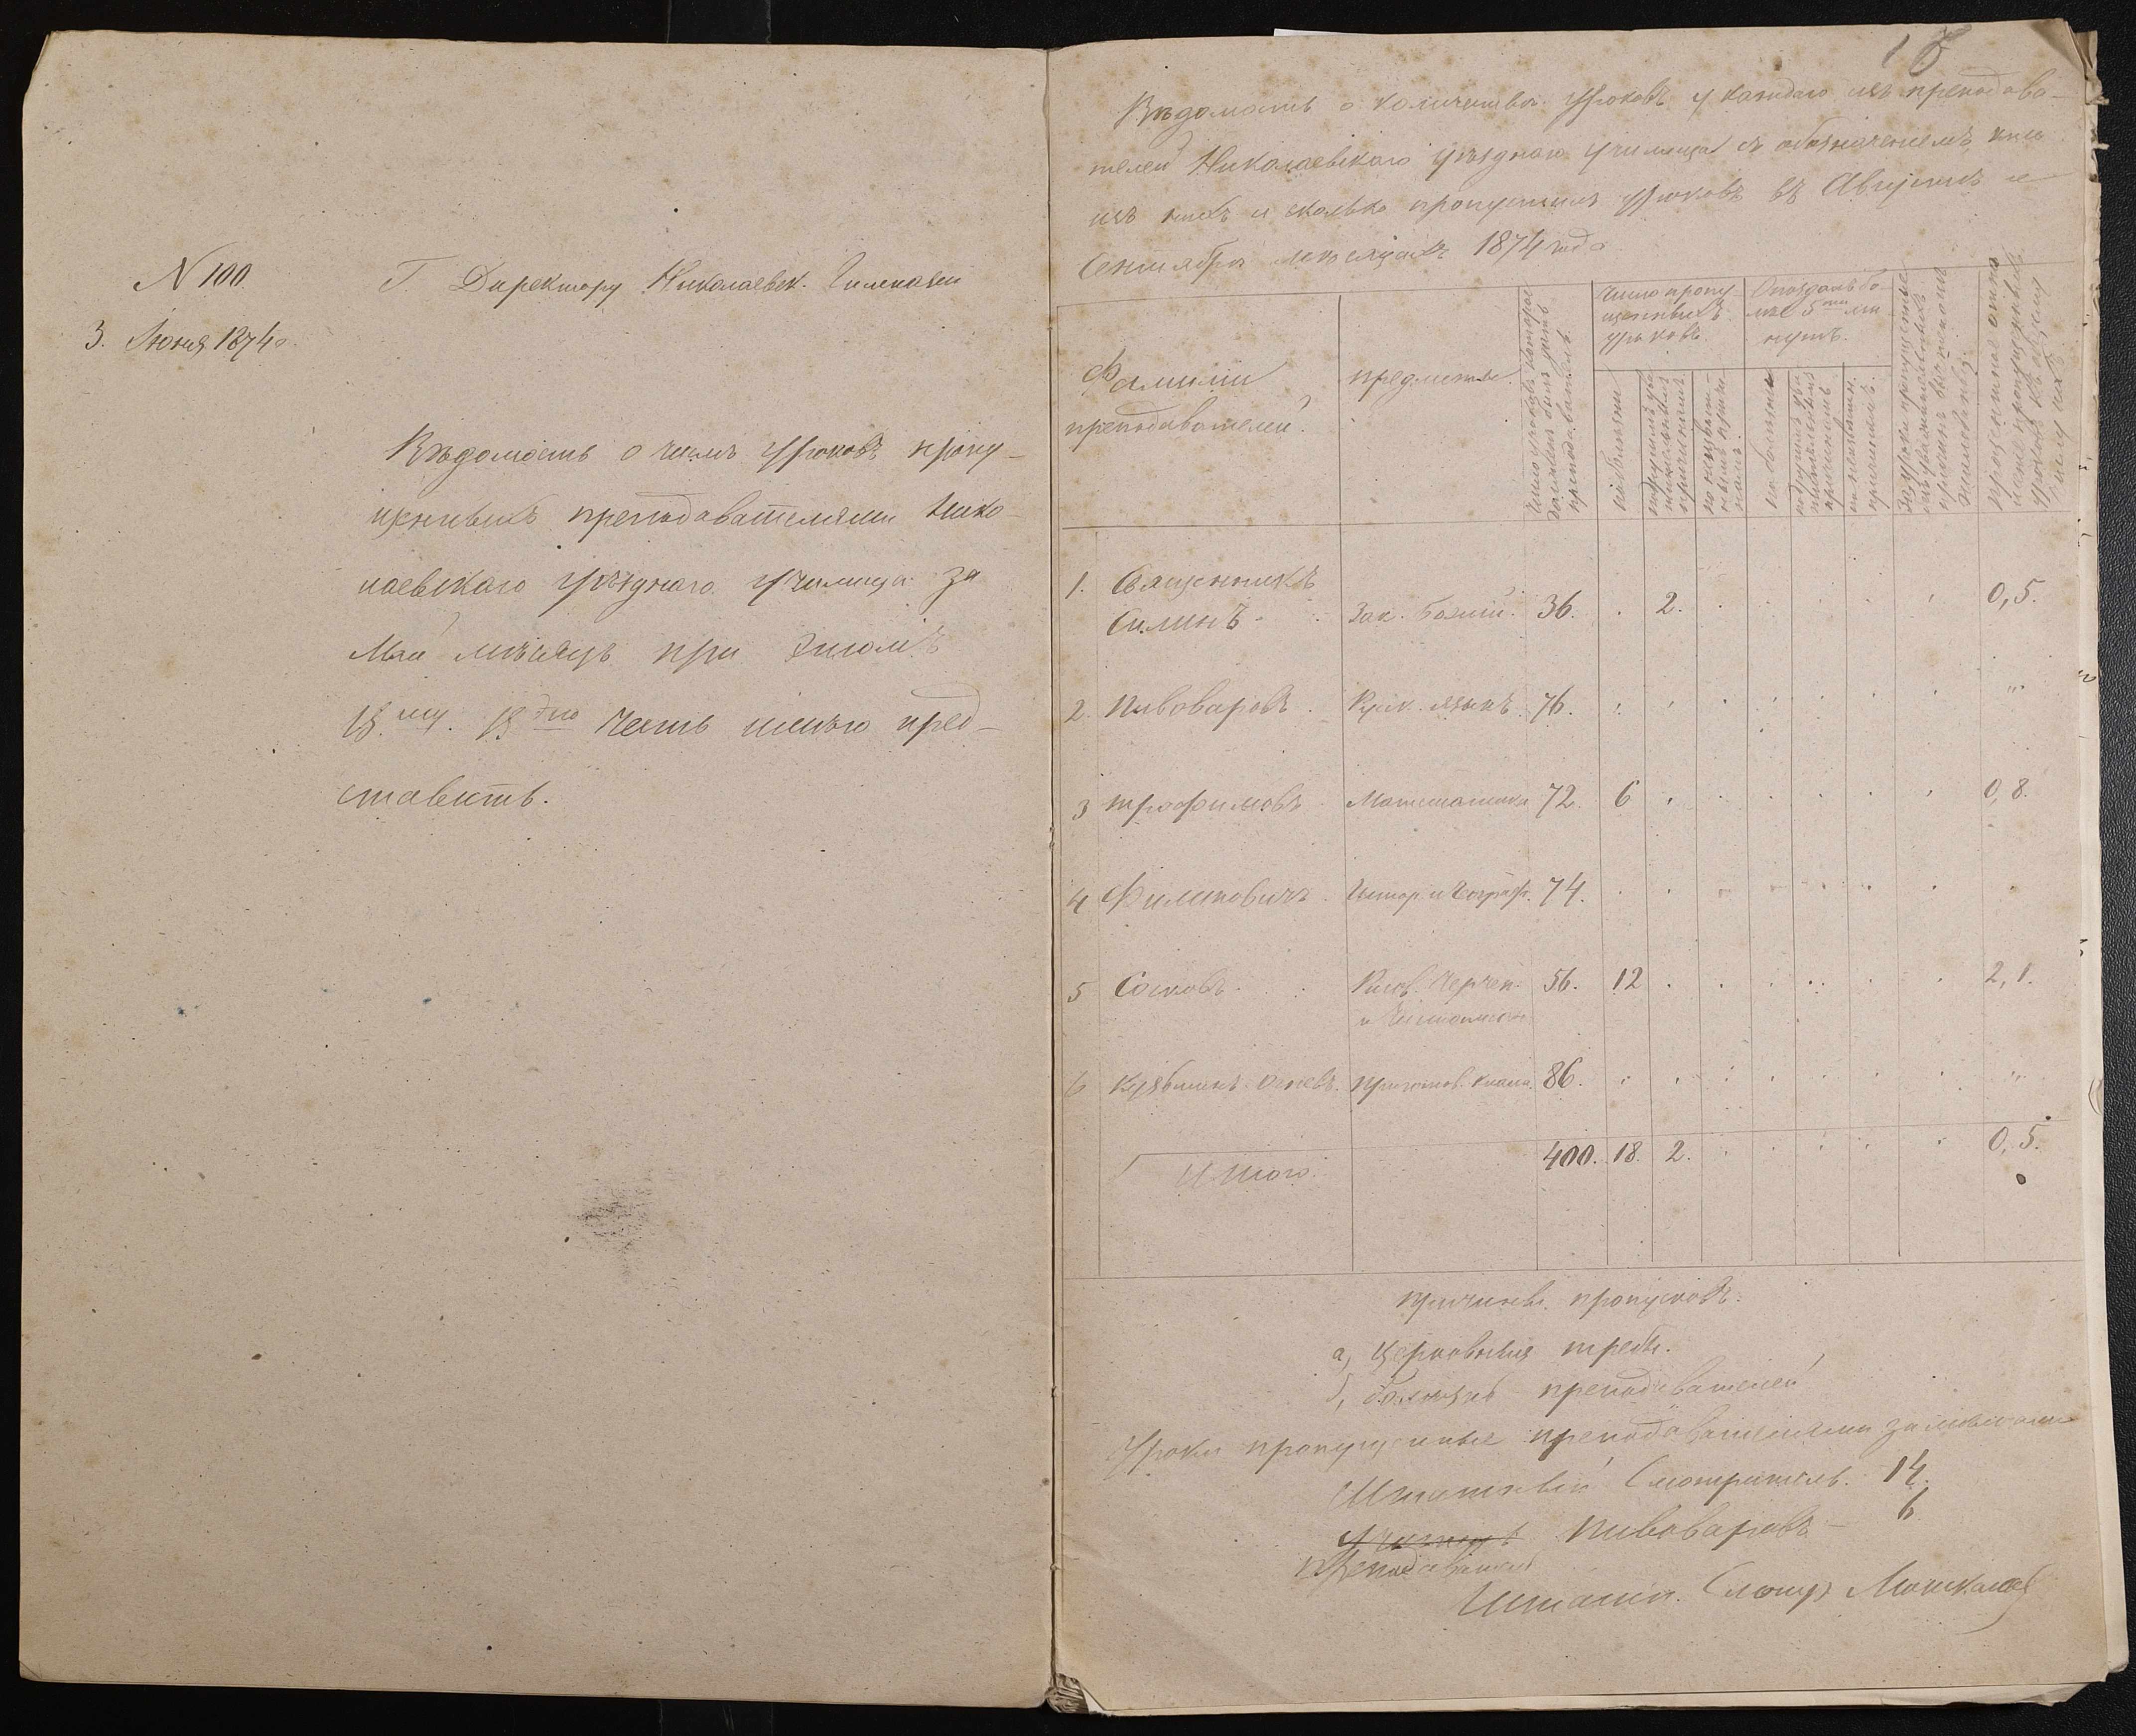 N 100
3. Июня 1874 г.
Г. Директору Николаевск. Гимназіи
Вѣдомость о числѣ уроковъ пропу-
щенныхъ преподавателями Нико-
лаевскаго уѣзднаго училища за
Май мѣсяцъ при этомъ
честь имѣю пред-
ставить.
Вѣдомость о количествѣ уроковъ у каждаго изъ преподава-
телей Николаевскаго уѣзднаго училища съ обозначеніемъ кто
изъ нихъ и сколько пропустилъ уроковъ въ Августѣ и
Сентябрѣ мѣсяцахъ 1874 года
Фамиліи
преподавателей.
предметы.
Число уроковъ которое
долженъ былъ дать
преподаватель.
Число пропу-
щенныхъ
уроковъ.
по болѣзни
по другимъ ува-
жительнымъ
причинамъ
по неуважи-
тельнымъ причи-
намъ.
Опоздалъ бо-
лѣе 5ти ми
нутъ.
по болѣзни
по другимъ ува-
жительнымъ
причинамъ
по неуважит.
причинамъ.
Процентное отно
шеніе пропущенныхъ
уроковъ къ общему
числу ихъ.
1. Священникъ
Силинъ. Зак. Божій. 36. . 2. 0,5.
2. Пивоваровъ. Руск. языкъ. 76.
3 Трофимовъ Математика 72. 6 0,8.
4 Филиповичъ. Истор. и Географ. 74.
5 Сосковъ. Рисов. Черчен. 56. 12 2,1.
и Чистописан.
6 приготов. класс. 86.
Итого. 400. 18. 2. 0,5.
Причины пропусковъ:
а, Церковныя требы.
б, болѣзнь преподавателей
Уроки пропущенные преподавателями занимали
Штатный Смотритель. 14.
Учитель Пивоваровъ – 6
Преподаватель
Штатн. Смотр